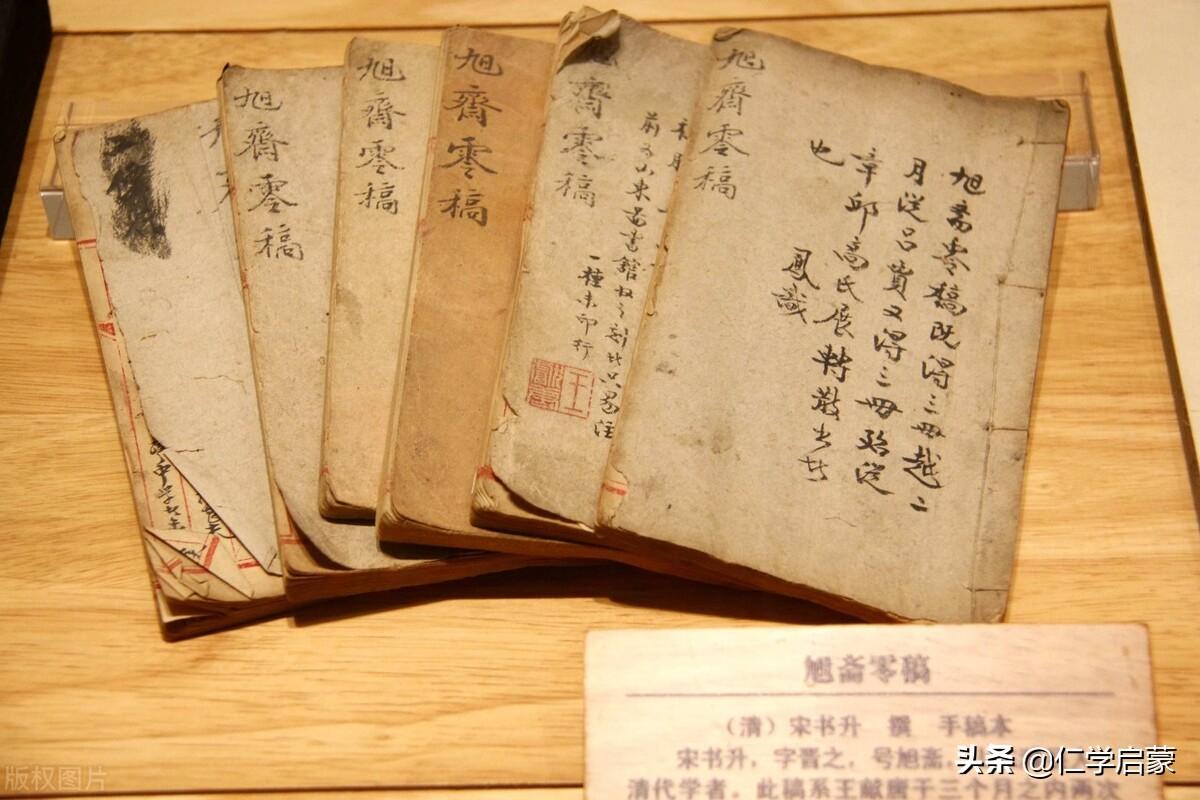 旭齋零稿
旭齋零稿既淂三冊越二
月從呂又淂三冊殆從
章邱高氏展轉散出
也
鳳識
齋零稿
前山東圖書館之刻
一種未印行
王
旭齋零稿
旭齋零稿
旭齋零稿
旭斋零稿
（清）宋书升 撰 手稿本
宋书升，字晋之，号旭斋，
清代学者。此稿系王献唐于三个月之内两次
头条 @仁学启蒙
版权图片